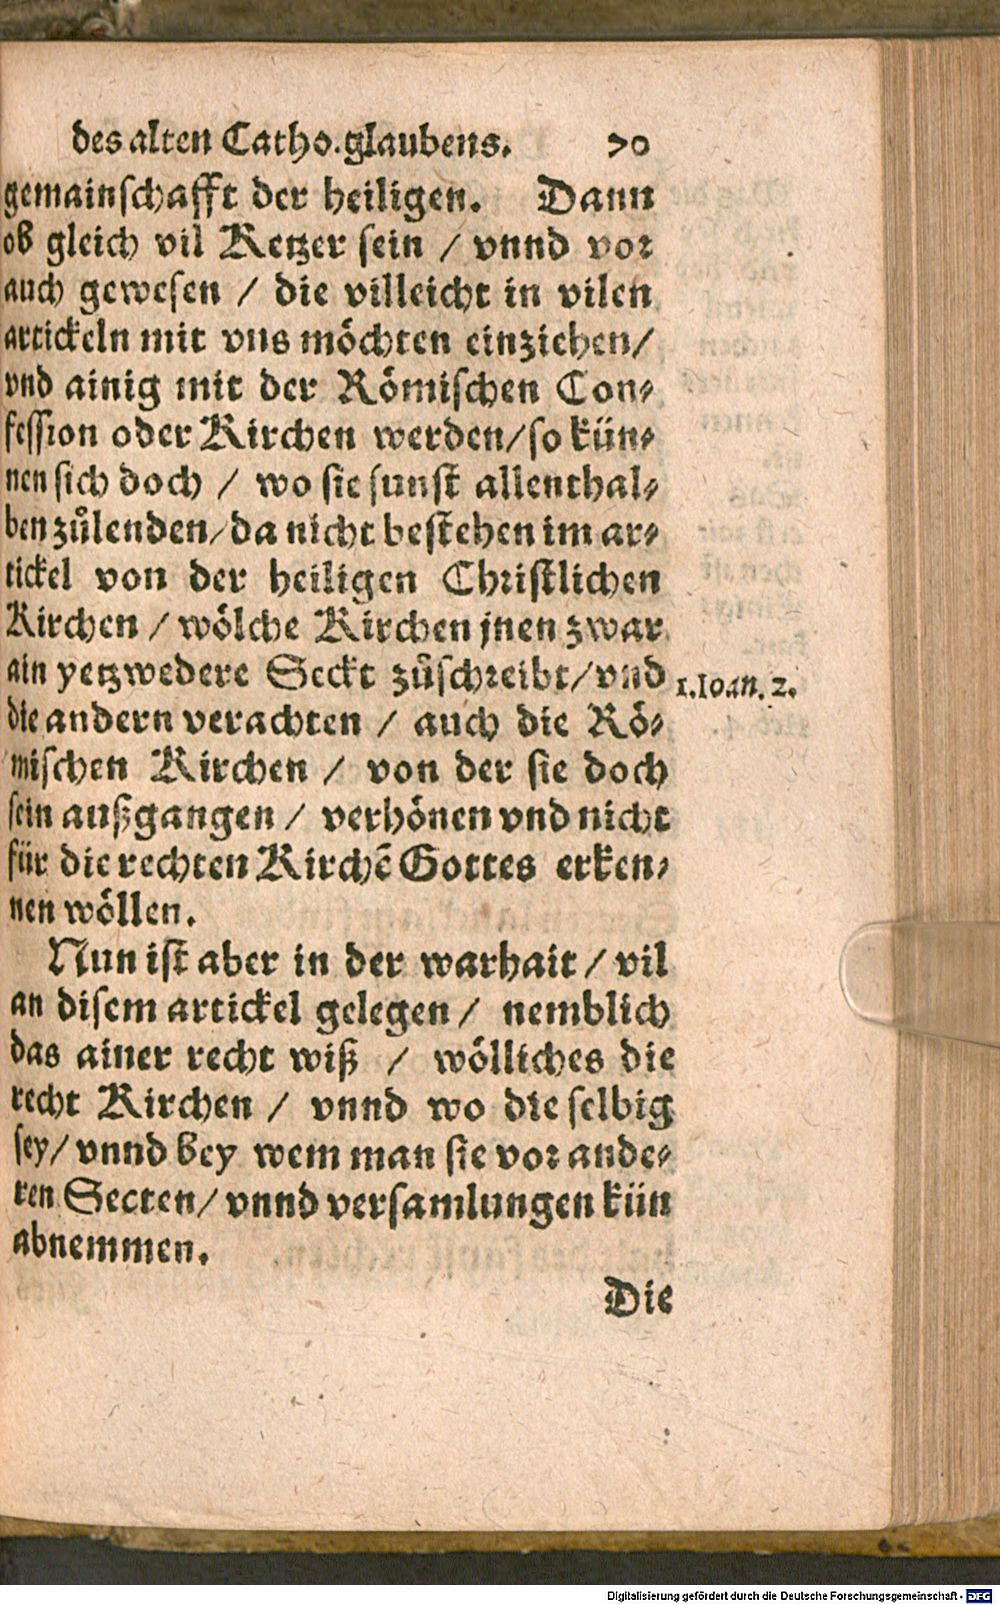 des alten Catho. glaubens. 70
gemainschafft der heiligen. Dann
ob gleich vil Ketzer sein / vnnd vor
auch gewesen / die villeicht in vilen
artickeln mit vns möchten einziehen /
vnd ainig mit der Römischen Con-
fession oder Kirchen werden / so kün-
nen sich doch / wo sie sunst allenthal-
ben zůlenden / da nicht bestehen im ar-
tickel von der heiligen Christlichen
Kirchen / wölche Kirchen jnen zwar
ain yetzwedere Seckt zůschreibt / vnd
die andern verachten / auch die Rö-
mischen Kirchen / von der sie doch
sein außgangen / verhönen vnd nicht
für die rechten Kirchẽ Gottes erken-
nen wöllen.
1. Ioan. 2.
Nun ist aber in der warhait / vil
an disem artickel gelegen / nemblich
das ainer recht wiß / wölliches die
recht Kirchen / vnnd wo die selbig
sey / vnnd bey wem man sie vor ande-
ren Secten / vnnd versamlungen kün
abnemmen.
Die
Digitalisierung gefördert durch die Deutsche Forschungsgemeinschaft - DFG